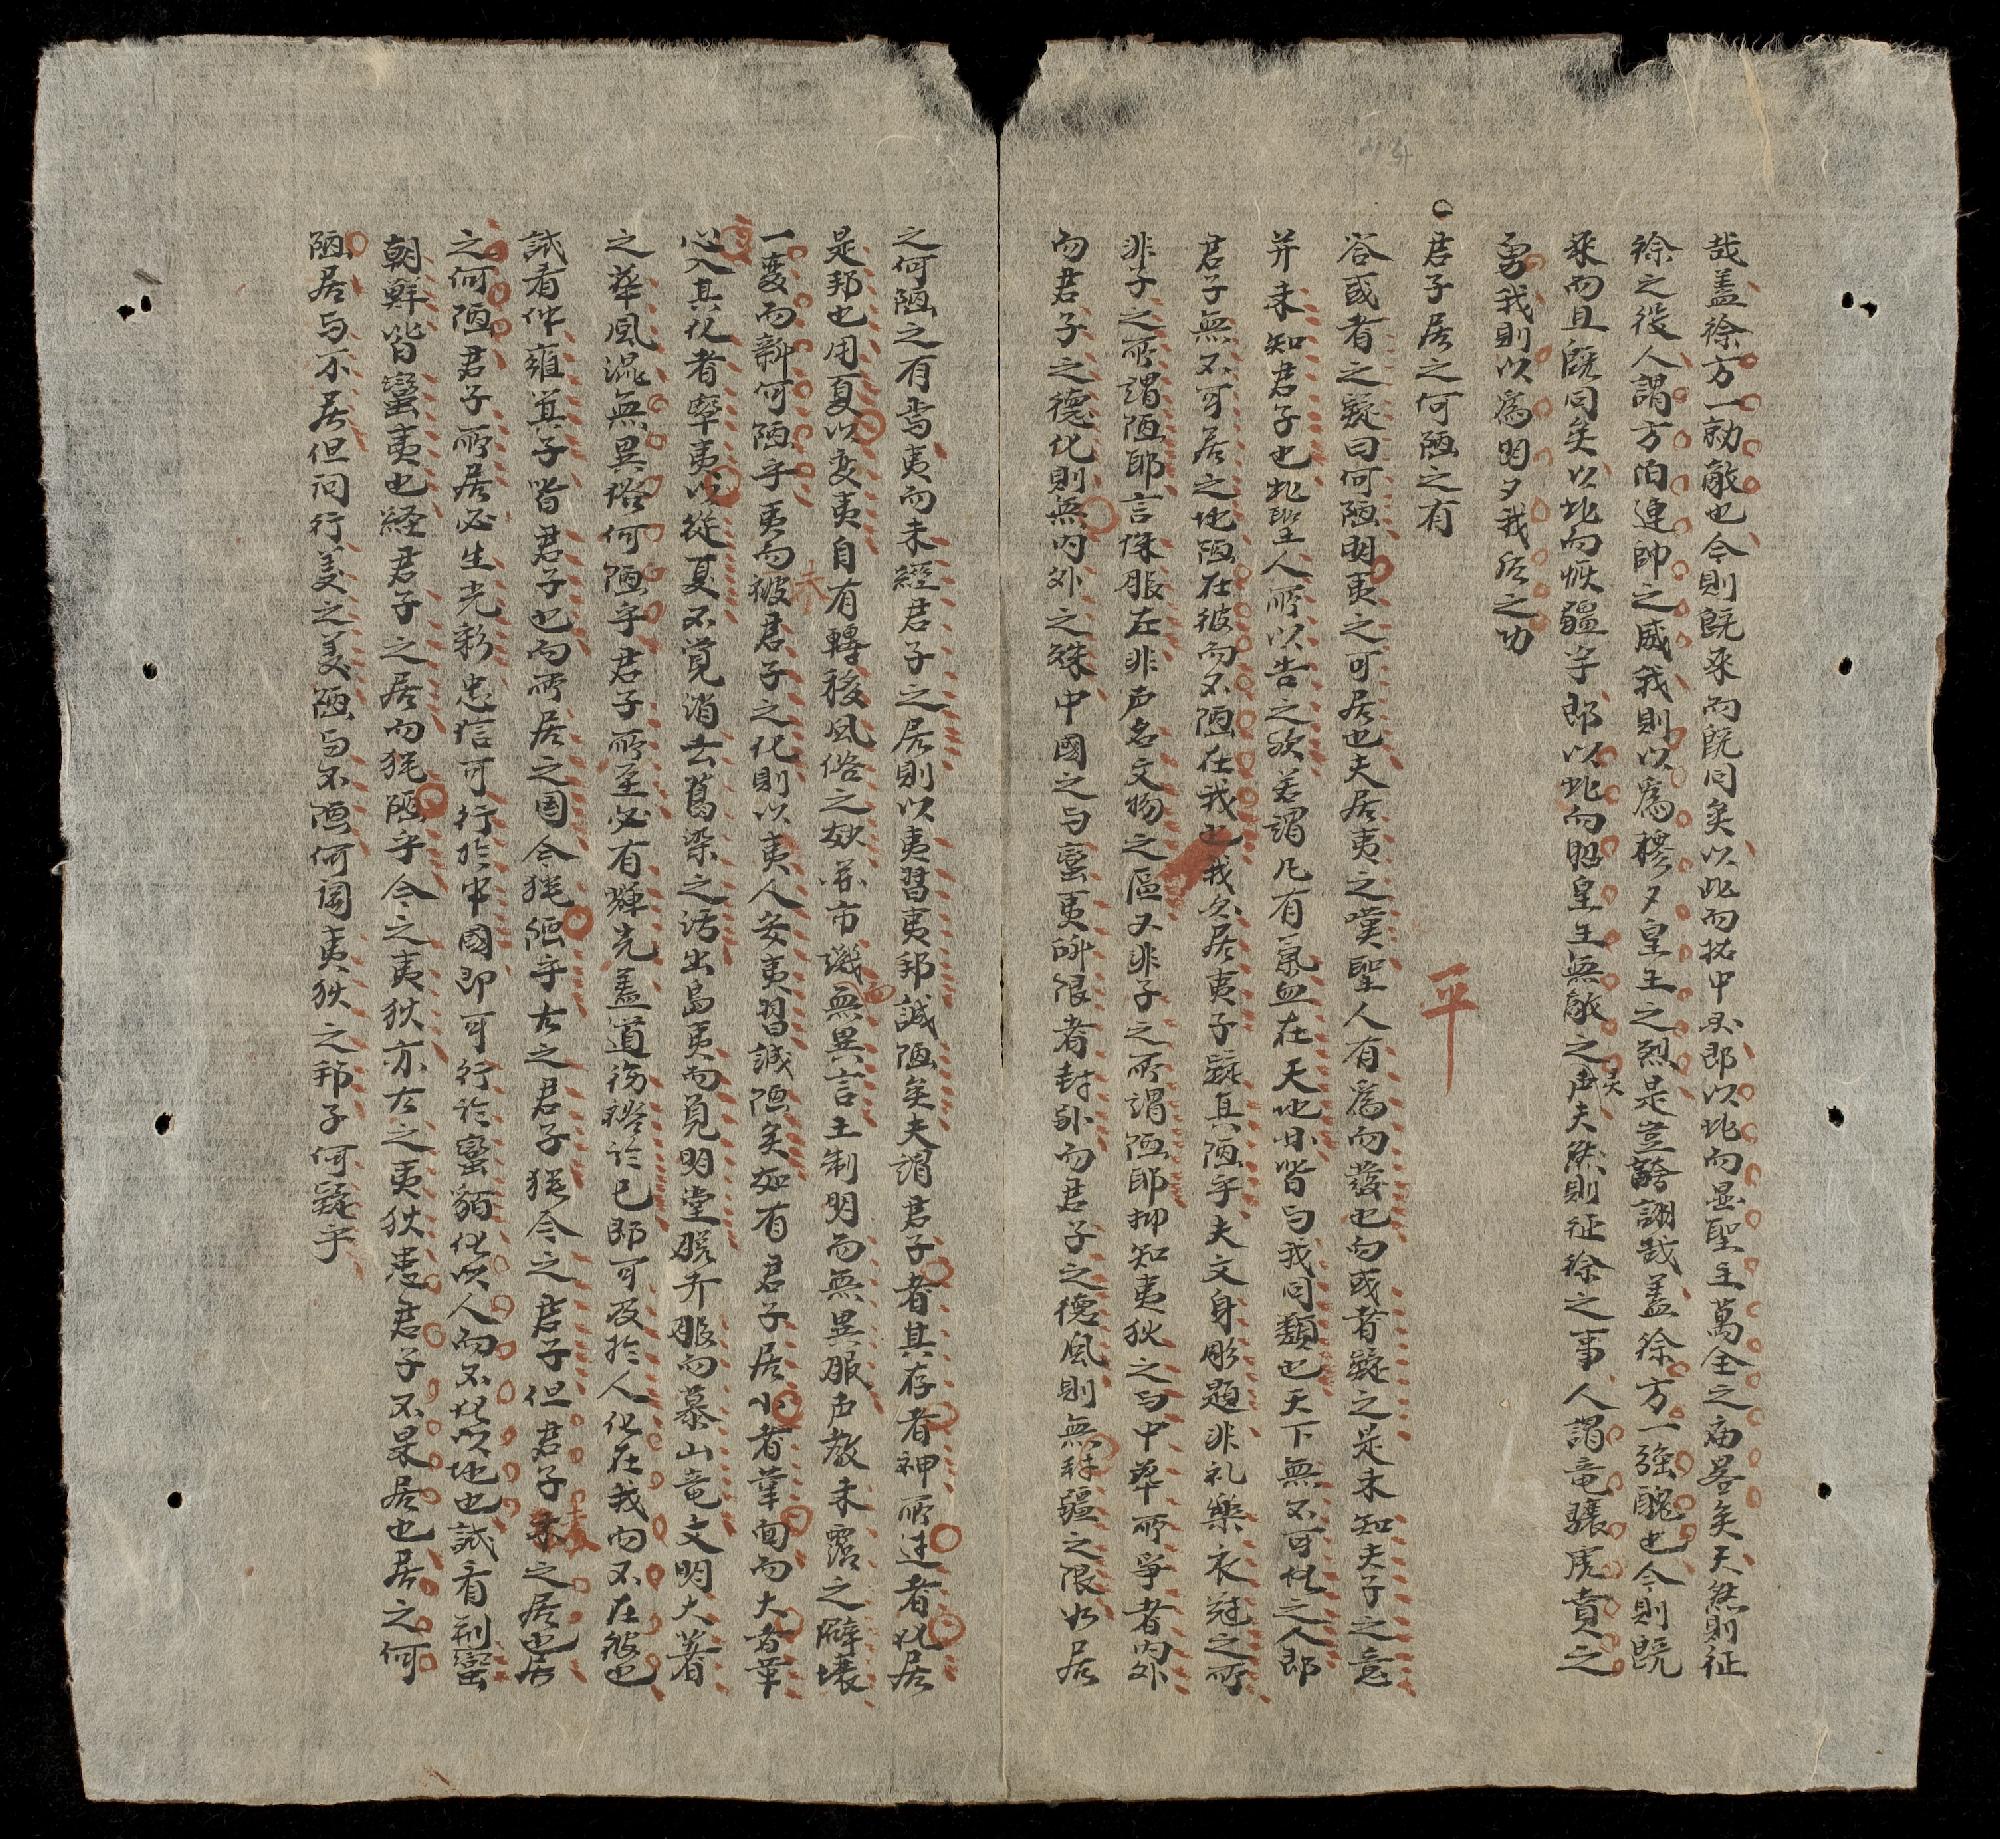 哉盖徐方一勍敵也今則既来而既同矣以此而拓中以郎以此而显聖主萬全之庙畧矣夫然則征
徐之役人謂方伯連帥之威我則以爲穆々皇王之烈是豈誇詡哉盖徐方一强醜也今則既
来而且既同矣以此而恢疆宇郎以此而昭皇王無敵之声灵夫然則征徐之事人謂竜驤虎賁之
勇我則以爲明々我后之功
○君子居之何陋之有
答或者之疑曰何陋明夷之可居也夫居夷之嘆聖人有爲而發也而或者疑之是未知夫子之意
并未知君子也此聖人所以告之欤若謂凡有氣血在天地毌皆与我同類也天下無不可化之人郎
君子無不可居之地陋在彼而不陋在我也我欲居夷子疑其陋乎夫文身彫題非礼樂衣冠之所
非子之所謂陋耶言侏服左非声名文物之區又非子之所謂陋耶抑知夷狄之与中華所爭者内外
而君子之德化則無内外之殊中國之与蛮夷所限者封卧而君子之德風則無封疆之限如居
之何陋之有焉夷而未經君子之居則以夷習夷邦誠陋矣夫謂君子者其存者神所过者化居
是邦也用夏以变夷自有轉移風俗之妙并市譏無異言王制明而無異服声教未霑之僻壤
一变而新何陋乎夷而被君子之化則以夷人安夷習誠陋矣如有君子居小者革面而大者革
心入其化者率夷以從夏不覚消去舊染之污出島夷而覓明堂脱卉服而慕山竜文明大著
之華風混無異俗何陋乎君子所至必有輝光盖道得於己即可及於人化在我而不在彼也
試看仲雍箕子皆君子也而所居之国今猶陋乎古之君子猶今之君子但君子未之居也居
之何陋君子所居必生光彩忠信可行於中國即可行於蛮貊化以人而不化以地也試看荆蛮
朝鮮皆蛮夷也経君子之居而猶陋乎今之夷狄亦古之夷狄患君子不果居也居之何
陋居与不居但问行美之美陋与不陋何闵夷狄之邦子何疑乎
平